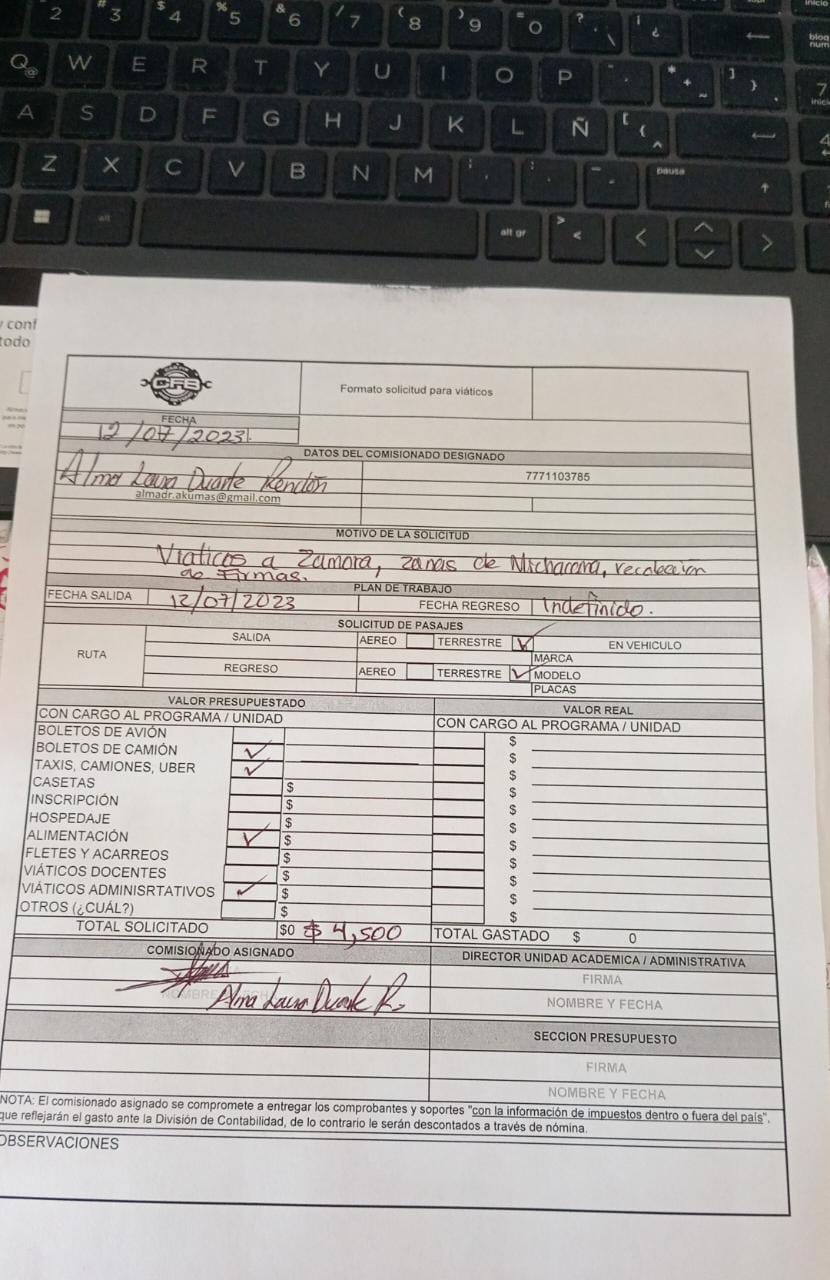 2 #3 $4 %5 &6 /7 (8 )9 =0 ? ¿
inicio
bloq num
Q@ W E R T Y U I O P * + ~ ] }
7 inicio
A S D F G H J K L Ñ [ { ^
4
Z X C V B N M ; , : . - pausa
alt alt gr > <
y conf
todo
CFB
Formato solicitud para viáticos
FECHA
12/07/2023
DATOS DEL COMISIONADO DESIGNADO
Alma Laura Duarte Rendón 7771103785
almadr.akumas@gmail.com
MOTIVO DE LA SOLICITUD
Viaticos a Zamora, zonas de Michacana, recolección
de Firmas.
PLAN DE TRABAJO
FECHA SALIDA 12/07/2023 FECHA REGRESO Indefinido.
SOLICITUD DE PASAJES
RUTA SALIDA AEREO TERRESTRE EN VEHICULO
MARCA
REGRESO AEREO TERRESTRE MODELO
PLACAS
VALOR PRESUPUESTADO VALOR REAL
CON CARGO AL PROGRAMA / UNIDAD CON CARGO AL PROGRAMA / UNIDAD
BOLETOS DE AVIÓN $
BOLETOS DE CAMIÓN $
TAXIS, CAMIONES, UBER $
CASETAS $ $
INSCRIPCIÓN $ $
HOSPEDAJE $ $
ALIMENTACIÓN $ $
FLETES Y ACARREOS $ $
VIÁTICOS DOCENTES $ $
VIÁTICOS ADMINISRTATIVOS $ $
OTROS (¿CUÁL?) $ $
TOTAL SOLICITADO $0 $ 4,500 TOTAL GASTADO $ 0
COMISIONADO ASIGNADO DIRECTOR UNIDAD ACADEMICA / ADMINISTRATIVA
FIRMA
NOMBRE Alma Laura Duarte R. NOMBRE Y FECHA
SECCION PRESUPUESTO
FIRMA
NOMBRE Y FECHA
NOTA: El comisionado asignado se compromete a entregar los comprobantes y soportes "con la información de impuestos dentro o fuera del país",
que reflejarán el gasto ante la División de Contabilidad, de lo contrario le serán descontados a través de nómina.
OBSERVACIONES